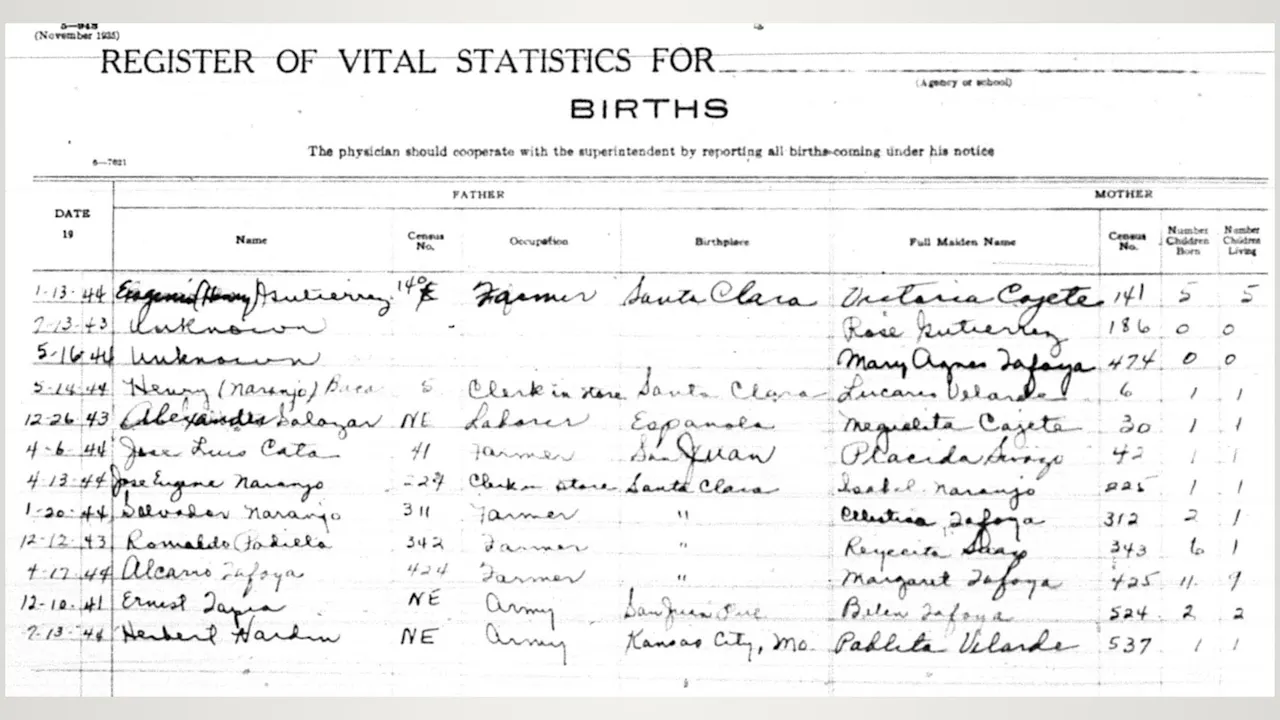 5-943
(November 1935)
REGISTER OF VITAL STATISTICS FOR
(Agency or school)
BIRTHS
The physician should cooperate with the superintendent by reporting all births coming under his notice
6-7621
FATHER MOTHER
DATE 19 Name Census No. Occupation Birthplace Full Maiden Name Census No. Number Children Born Number Children Living
1-13-44 Eugenio (Henry) Gutierrez 140 Farmer Santa Clara Victoria Cajete 141 5 5
7-13-43 Unknown Rose Gutierrez 186 0 0
5-16-44 Unknown Mary Agnes Tafoya 474 0 0
5-14-44 Henry (Naranjo) Baca 5 Clerk in store Santa Clara Velarde 6 1 1
12-26-43 Alexander Salazar NE Laborer Espanola Cajete 30 1 1
4-6-44 Jose Luis Cata 41 Farmer San Juan Placida 42 1 1
4-13-44 Jose Eugene Naranjo 224 Clerk in store Santa Clara Isabel Naranjo 225 1 1
1-20-44 Salvador Naranjo 311 Farmer " Celestina Tafoya 312 2 1
12-12-43 Romaldo Padilla 342 Farmer " Reycita 343 6 1
4-17-44 Alcario Tafoya 424 Farmer " Margaret Tafoya 425 11 9
12-10-41 Ernest Tapia NE Army San Juan Pue Belen Tafoya 524 2 2
7-13-44 Herbert Hardin NE Army Kansas City, Mo. Pablita Velarde 537 1 1